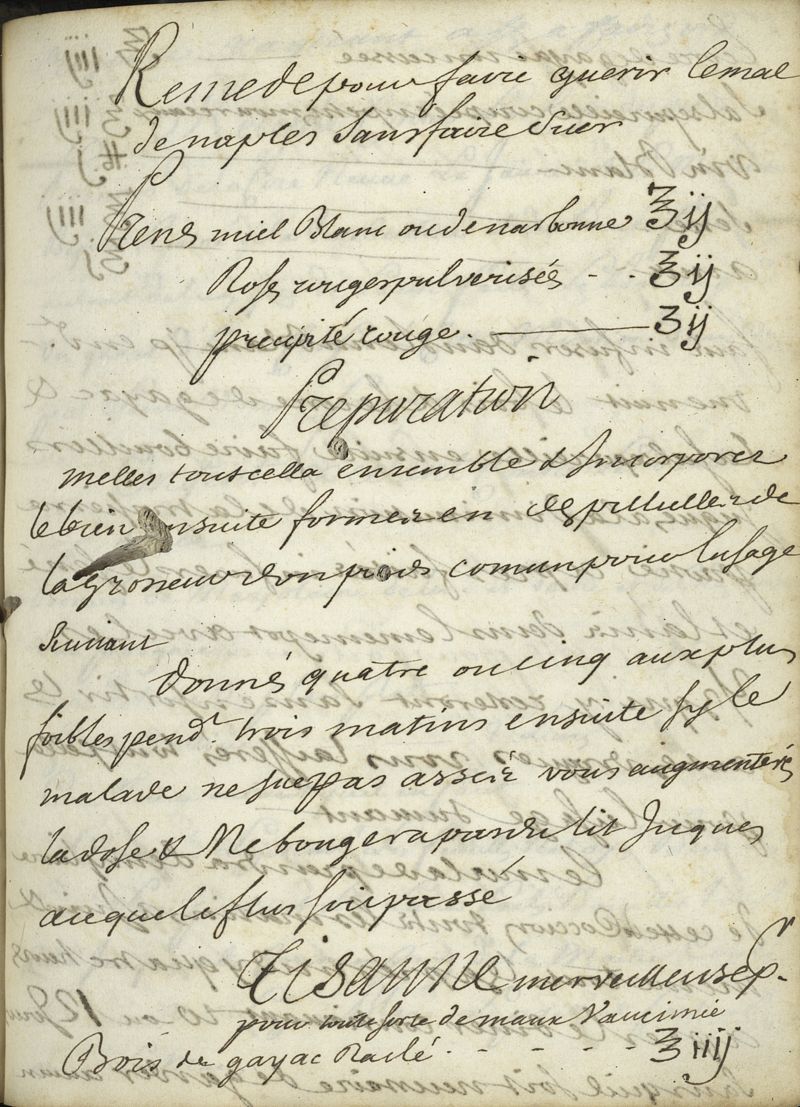 Remede pour faire guerir le mal
de naples sans faire suer
Prens miel Blanc ou de narbonne ℥ij
Roses rouges pulverisés - - ℥ij
precipité rouge. —— ʒij
Preparation
melles tout cella ensemble & Incorporez
le bien ensuite formez en des pillulles de
la grosseur d'un pois comun pour lusage
suivant
donnés quatre ou cinq aux plus
foibles pend.t trois matins ensuite sy le
malade ne sue pas asséz vous augmenterés
la dose & Ne bougera pas du lit Jusques
a ce que le flus soit passé
Tisanne merveilleuse p.r
pour toute sorte de maux
Bois de gayac Raclé. - - - - ℥iiij